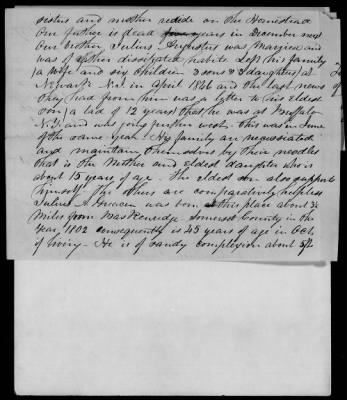 sisters and mother reside on the Homestead
Our father is dead years in December next
Our brother Julius Augustus was married and
was of rather dissipated habits Left his family
(a wife and six children 3 sons & 3 daughters) at
Newark N.J. in April 1846 and the last news
they had from him was a letter to his eldest
son (a lad of 12 years) that he was at Buffalo
N.Y. and was going further west. This was in June
of the same year. His family are
and maintain themselves by their needles
that is the mother and eldest daughter who is
about 15 years of age. The eldest son also supports
himself. The others are comparatively helpless
Julius A. was born at this place about 3½
miles from Baskenridge Somerset County in the
Year 1802 consequently is 45 years of age in Oct.
if living. He is of Sandy complexion about 5 ft